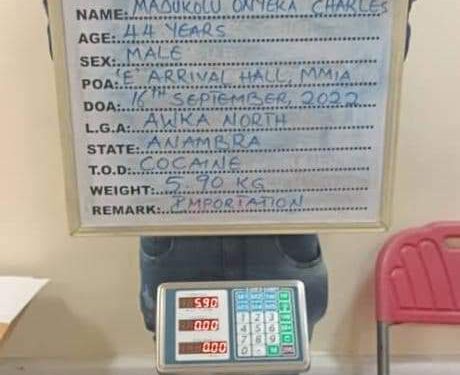 NAME: MADUKOLU ONYEKA CHARLES
AGE: 44 YEARS
SEX: MALE
POA: 'E' ARRIVAL HALL, MMIA
DOA: 16TH SEPTEMBER, 2022
L.G.A: AWKA NORTH
STATE: ANAMBRA
T.O.D: COCAINE
WEIGHT: 5.90 KG
REMARK: IMPORTATION
5.90
0.00
0.00
1 2 3
4 5 6
7 8 9
0